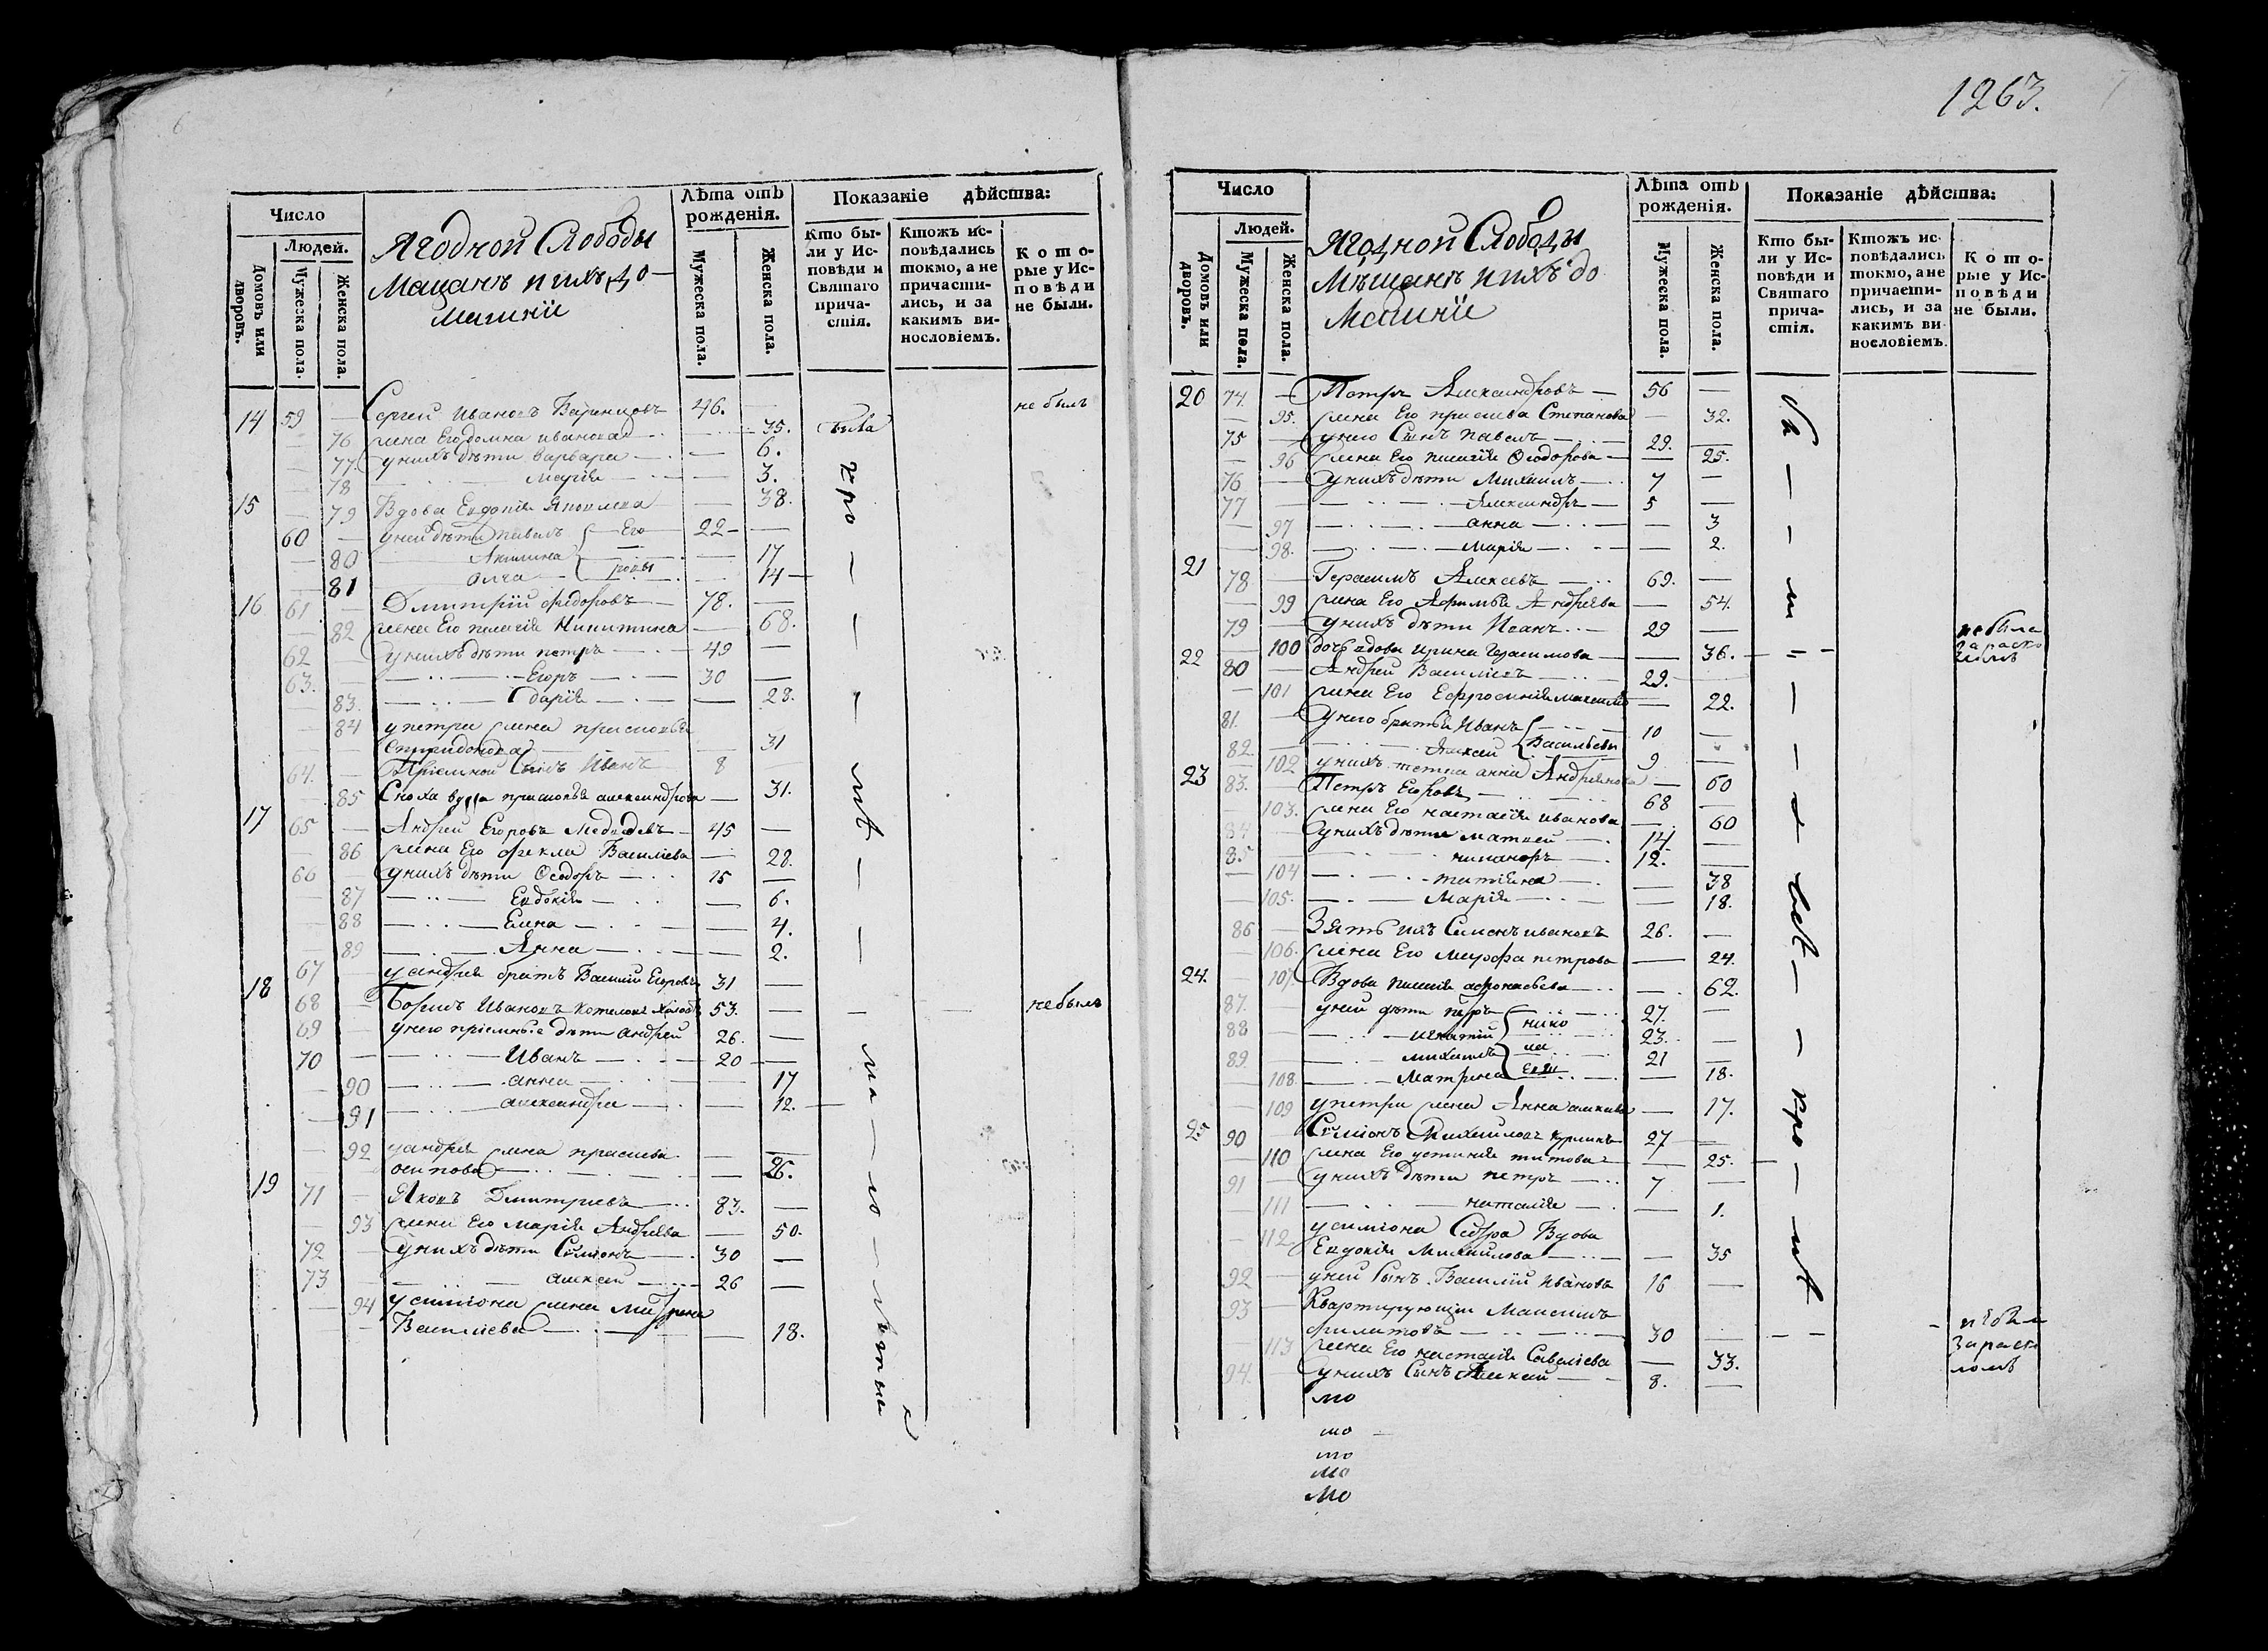 1263.
Число
Людей.
Домовъ или дворовъ.
Мужеска пола.
Женска пола.
Ягодной Слободы
Мащанъ и ихъ до-
машнiи
Лѣта отъ рожденiя.
Мужеска пола.
Женска пола.
Показанiе дѣйства:
Кто бы-
ли у Ис-
повѣди и
Святаго
прича-
стiя.
Ктожъ ис-
повѣдались
токмо, а не
причасти-
лись, и за
какимъ ви-
нословiемъ.
Кото-
рые у Ис-
повѣди
не были.
14 59 — Сергей Иванов 46. — не былъ
— 76 жена Его домна иванова — 35. была
— 77 у нихъ дѣти варвара — 6.
— 78 — марiя — 3.
15 — 79 Вдова Евдокiя — 38.
60 — у ней дѣти павелъ Его 22 —
— 80 Акилина — 17
— 81 олга ровы — 14 —
16 61 — Дмитрiй федоровъ — 78. —
— 82 жена Его пелагiя Никитина — 68.
62 — у нихъ дѣти петръ — 49 —
63. — Егоръ — 30 —
— 83. — дарiя — 28.
— 84 у петра жена прасковья
Спиридонова — 31
64. — Прiемной Сынъ Иванъ 8
— 85 Сноха вдова прасковья александрова — 31.
17 65 — Андрей Егоровъ Медведевъ — 45 —
— 86 жена Его фекла Василiева — 28.
66 — у нихъ дѣти Феодоръ — 15 —
— 87 — Евдокiя — 6.
— 88 — Елена — 4.
— 89 — Анна — 2.
67 — у андрея братъ Василiй Егоровъ 31 —
18 68 — Борисъ Ивановъ 53. — не былъ
69 — у него прiемные дѣти андрей 26. —
70 — Иванъ — 20 —
— 90 — анна — 17
— 91 — александра — 12. —
— 92 у андрея жена прасковья
осипова — 26.
19 71 — Яковъ Дмитрiевъ 83. —
— 93 жена Его марiя Андреева — 50.
72 — у нихъ дѣти Симiонъ — 30 —
73 — алексей — 26 —
— 94 у симiона жена Матрена
Василiева — 18.
Число
Людей.
Домовъ или дворовъ.
Мужеска пола.
Женска пола.
Ягодной Слободы
Мѣщанъ и ихъ до
машнiи
Лѣта отъ рожденiя.
Мужеска пола.
Женска пола.
Показанiе дѣйства:
Кто бы-
ли у Ис-
повѣди и
Святаго
прича-
стiя.
Ктожъ ис-
повѣдались
токмо, а не
причасти-
лись, и за
какимъ ви-
нословiемъ.
Кото-
рые у Ис-
повѣди
не были.
20 74. — Петръ Александровъ — 56 —
— 95. жена Его Степанова — 32.
75 — у него Сынъ павелъ — 29. —
— 96 жена Его пелагiя Феодорова — 25.
76 — у нихъ дѣти Михаилъ — 7 —
77 — Александръ — 5 —
— 97 — анна — 3
— 98. — Марiя — 2.
21 78 — Герасимъ Алексевъ — 69. —
— 99 жена Его Афимья Андреява — 54.
79 — у нихъ дѣти Иванъ — 29 —
— 100 дочь вдова ирина Герасимова — 36. — не была за раско ломъ
22 80 — Андрей Василiевъ — 29.
— 101 жена Его Ефросинiя — 22.
81. — у него братья Иванъ 10 —
82 — Алексей Васильевы 9 —
— 102 у нихъ тетка анна Андреянова — 60
23 83. — Петръ Егоровъ — 68 —
— 103. жена Его настасiя иванова — 60
84 — у нихъ дѣти матвей — 14 —
85 — никаноръ — 12. —
— 104 — татiяна — 38
— 105. — Марiя — 18.
86 — Зять ихъ Семенъ ивановъ 26. —
— 106. жена Его марфа петрова — 24.
24. — 107. Вдова пелагiя афонасьева — 62.
87. — у ней дѣти петръ 27. —
88 — игнатiй нико 23. —
89 — михаилъ ла 21 —
— 108. — Матрена евы — 18.
— 109 у петра жена Анна — 17.
25 90 — Симiонъ Михайловъ 27 —
— 110 жена Его устинiя титова — 25. —
91 — у нихъ дѣти петръ — 7 —
— 111 — наталiя — 1.
— 112. у симiона Сестра Вдова
Евдокiя Михайлова — 35
92 — у ней Сынъ Василiй Ивановъ 16 —
93 — Квартирующiй Максимъ
филатовъ — 30 — за раско ломъ
— 113 жена Его настасiя Савелiева — 33.
94. — у нихъ Сынъ Алексей — 8. —
мо
мо
мо
мо
мо